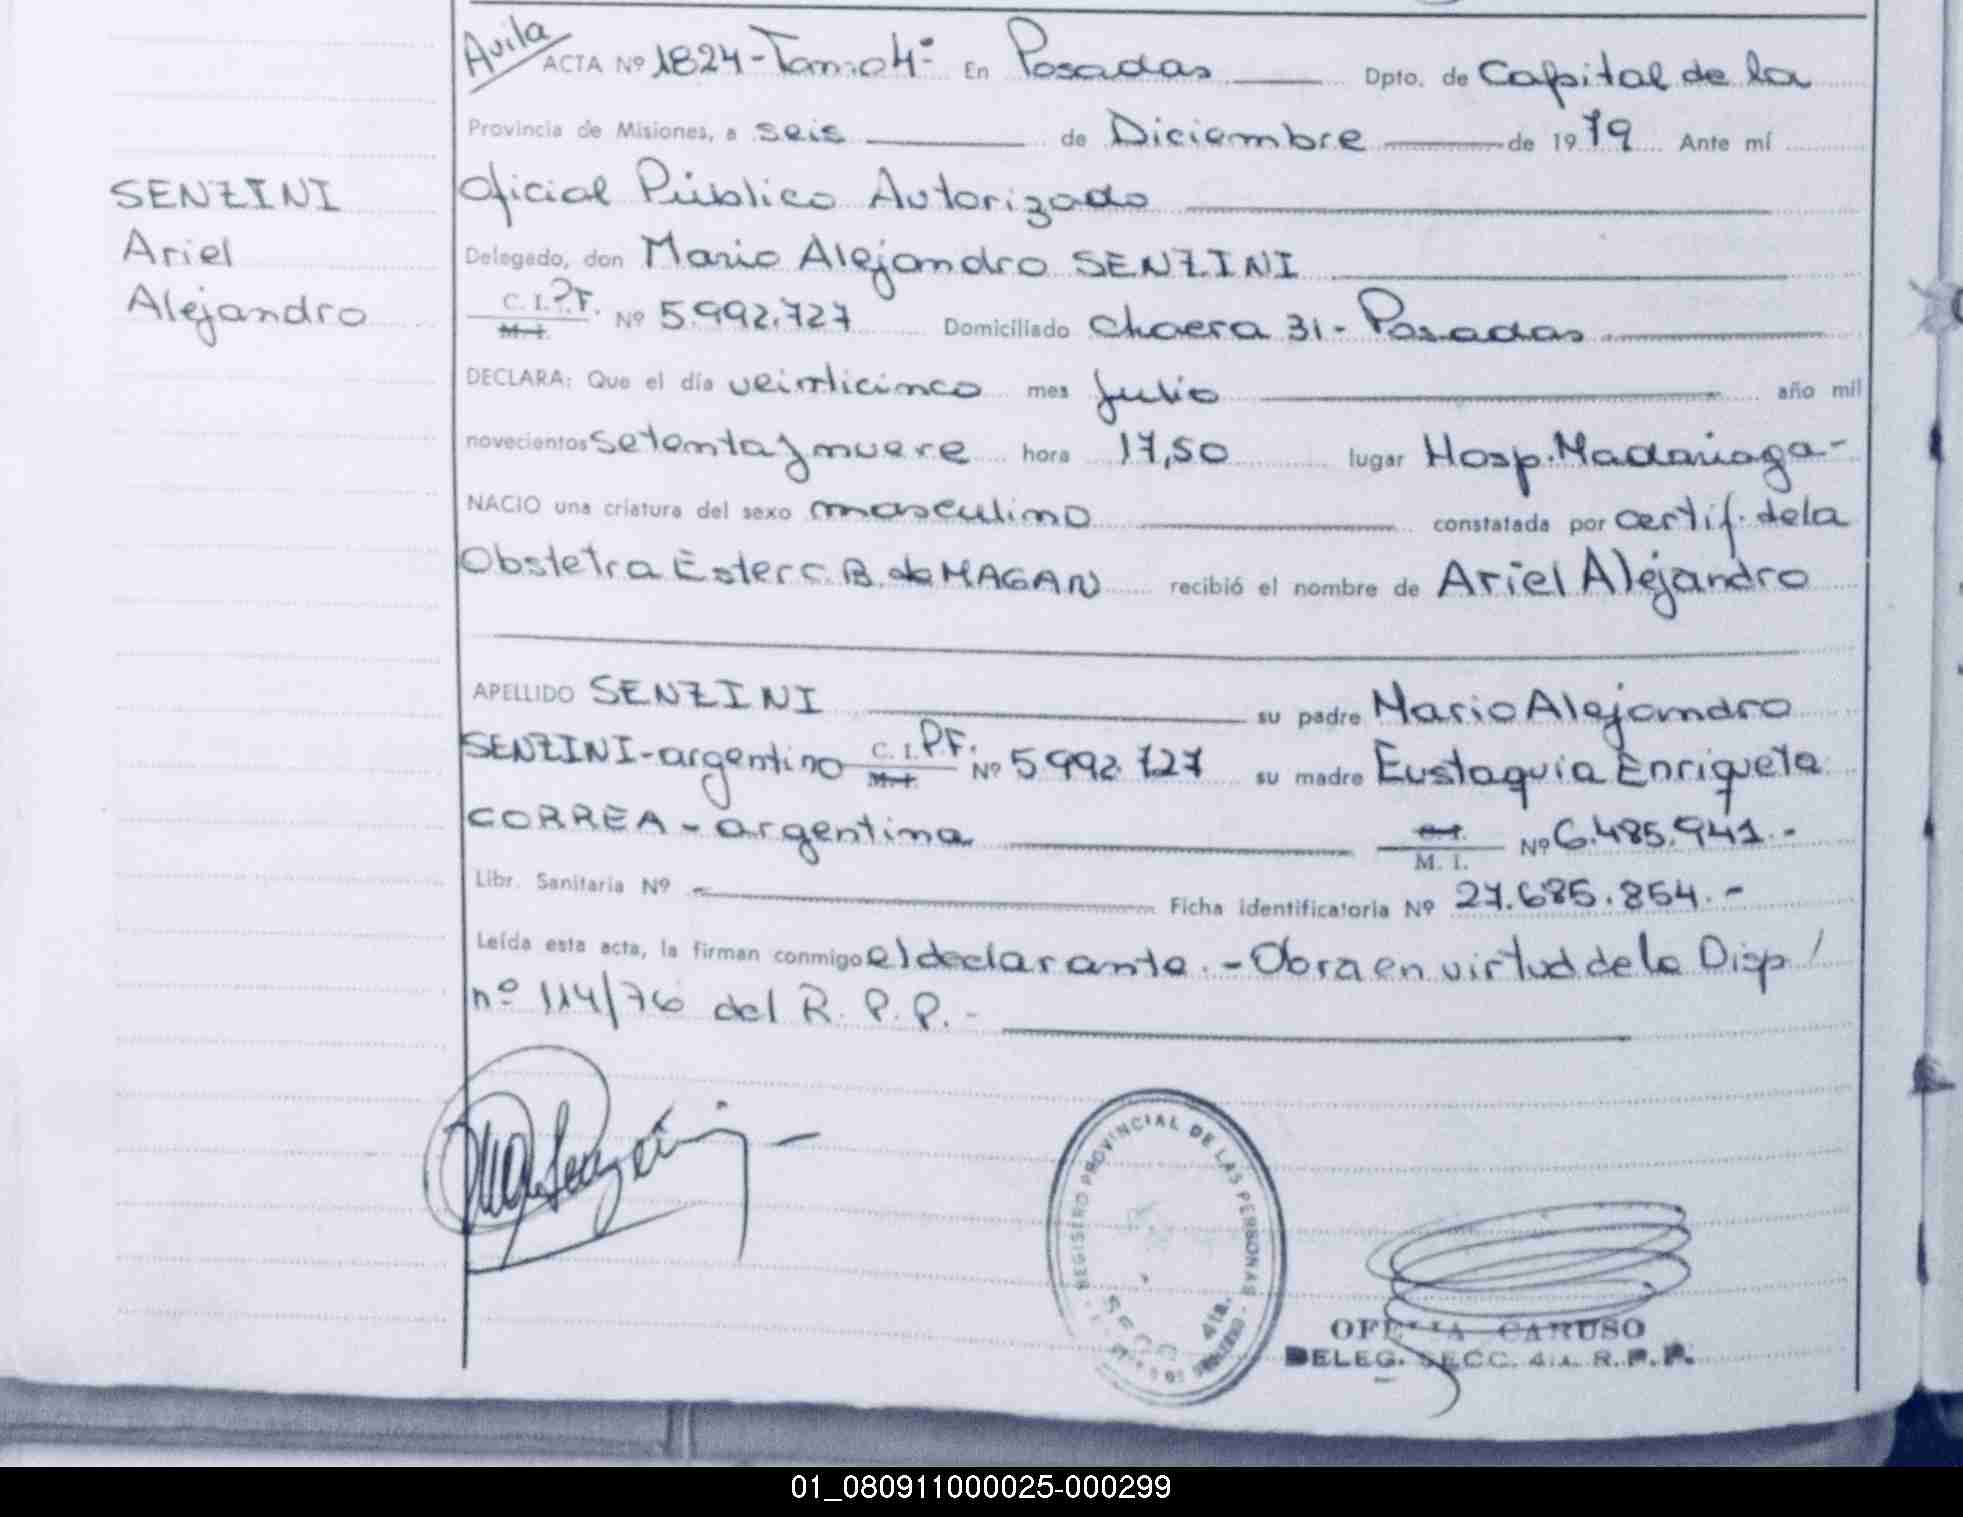 Avila
ACTA Nº 1824-Tomo 4º En Posadas Dpto. de Capital de la
Provincia de Misiones, a seis de Diciembre de 1979 Ante mí
SENZINI
Ariel
Alejandro
Oficial Público Autorizado
Delegado, don Mario Alejandro SENZINI
C. I. P.F.
M. I. Nº 5.992.727 Domiciliado Chacra 31 - Posadas
DECLARA: Que el día veinticinco mes Julio año mil
novecientos setenta y nueve hora 17,50 lugar Hosp. Madariaga-
NACIO una criatura del sexo masculino constatada por certif. de la
Obstetra Ester C. B. de MAGAN recibió el nombre de Ariel Alejandro
APELLIDO SENZINI su padre Mario Alejandro
SENZINI-argentino C. I. PF. M. I. Nº 5992.727 su madre Eustaquia Enriqueta
CORREA - argentina M. I. Nº 6.485.941.-
Libr. Sanitaria Nº Ficha identificatoria Nº 27.685.854.-
Leída esta acta, la firman conmigo el declarante.- Obra en virtud de la Disp/
nº 114/76 del R. P. P.-
REGISTRO PROVINCIAL DE LAS PERSONAS
SECC 4ta.
OFELIA CARUSO
DELEG. SECC. 4ta. R. P. P.
01_080911000025-000299